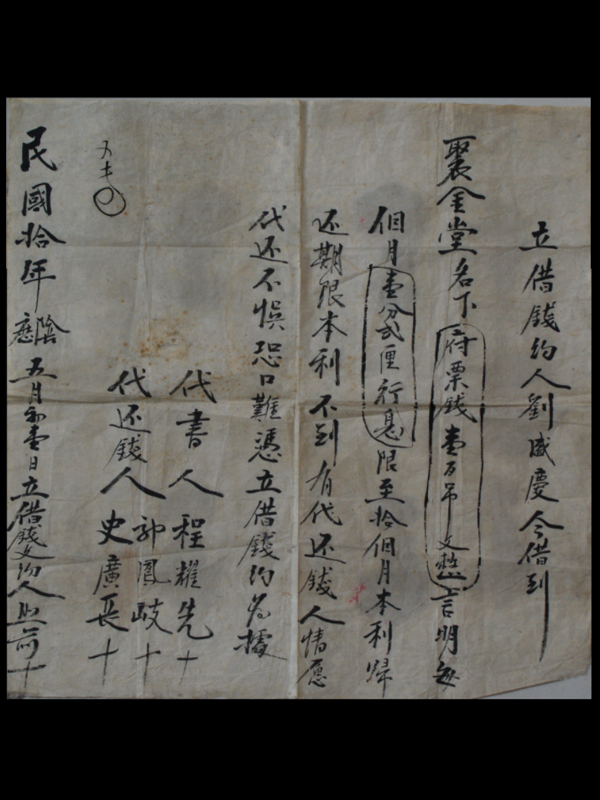 立借錢約人劉盛慶今借到
聚金堂名下府票錢壹百吊文整言明每
個月壹分貳厘行息限至拾個月本利歸
还期限本利不到有代还錢人情愿
代还不悞恐口難憑立借錢約為據
代書人程耀先十
代还錢人
郭鳳岐十
史廣長十
民國拾年陰應五月初壹日立借錢文約人照前十